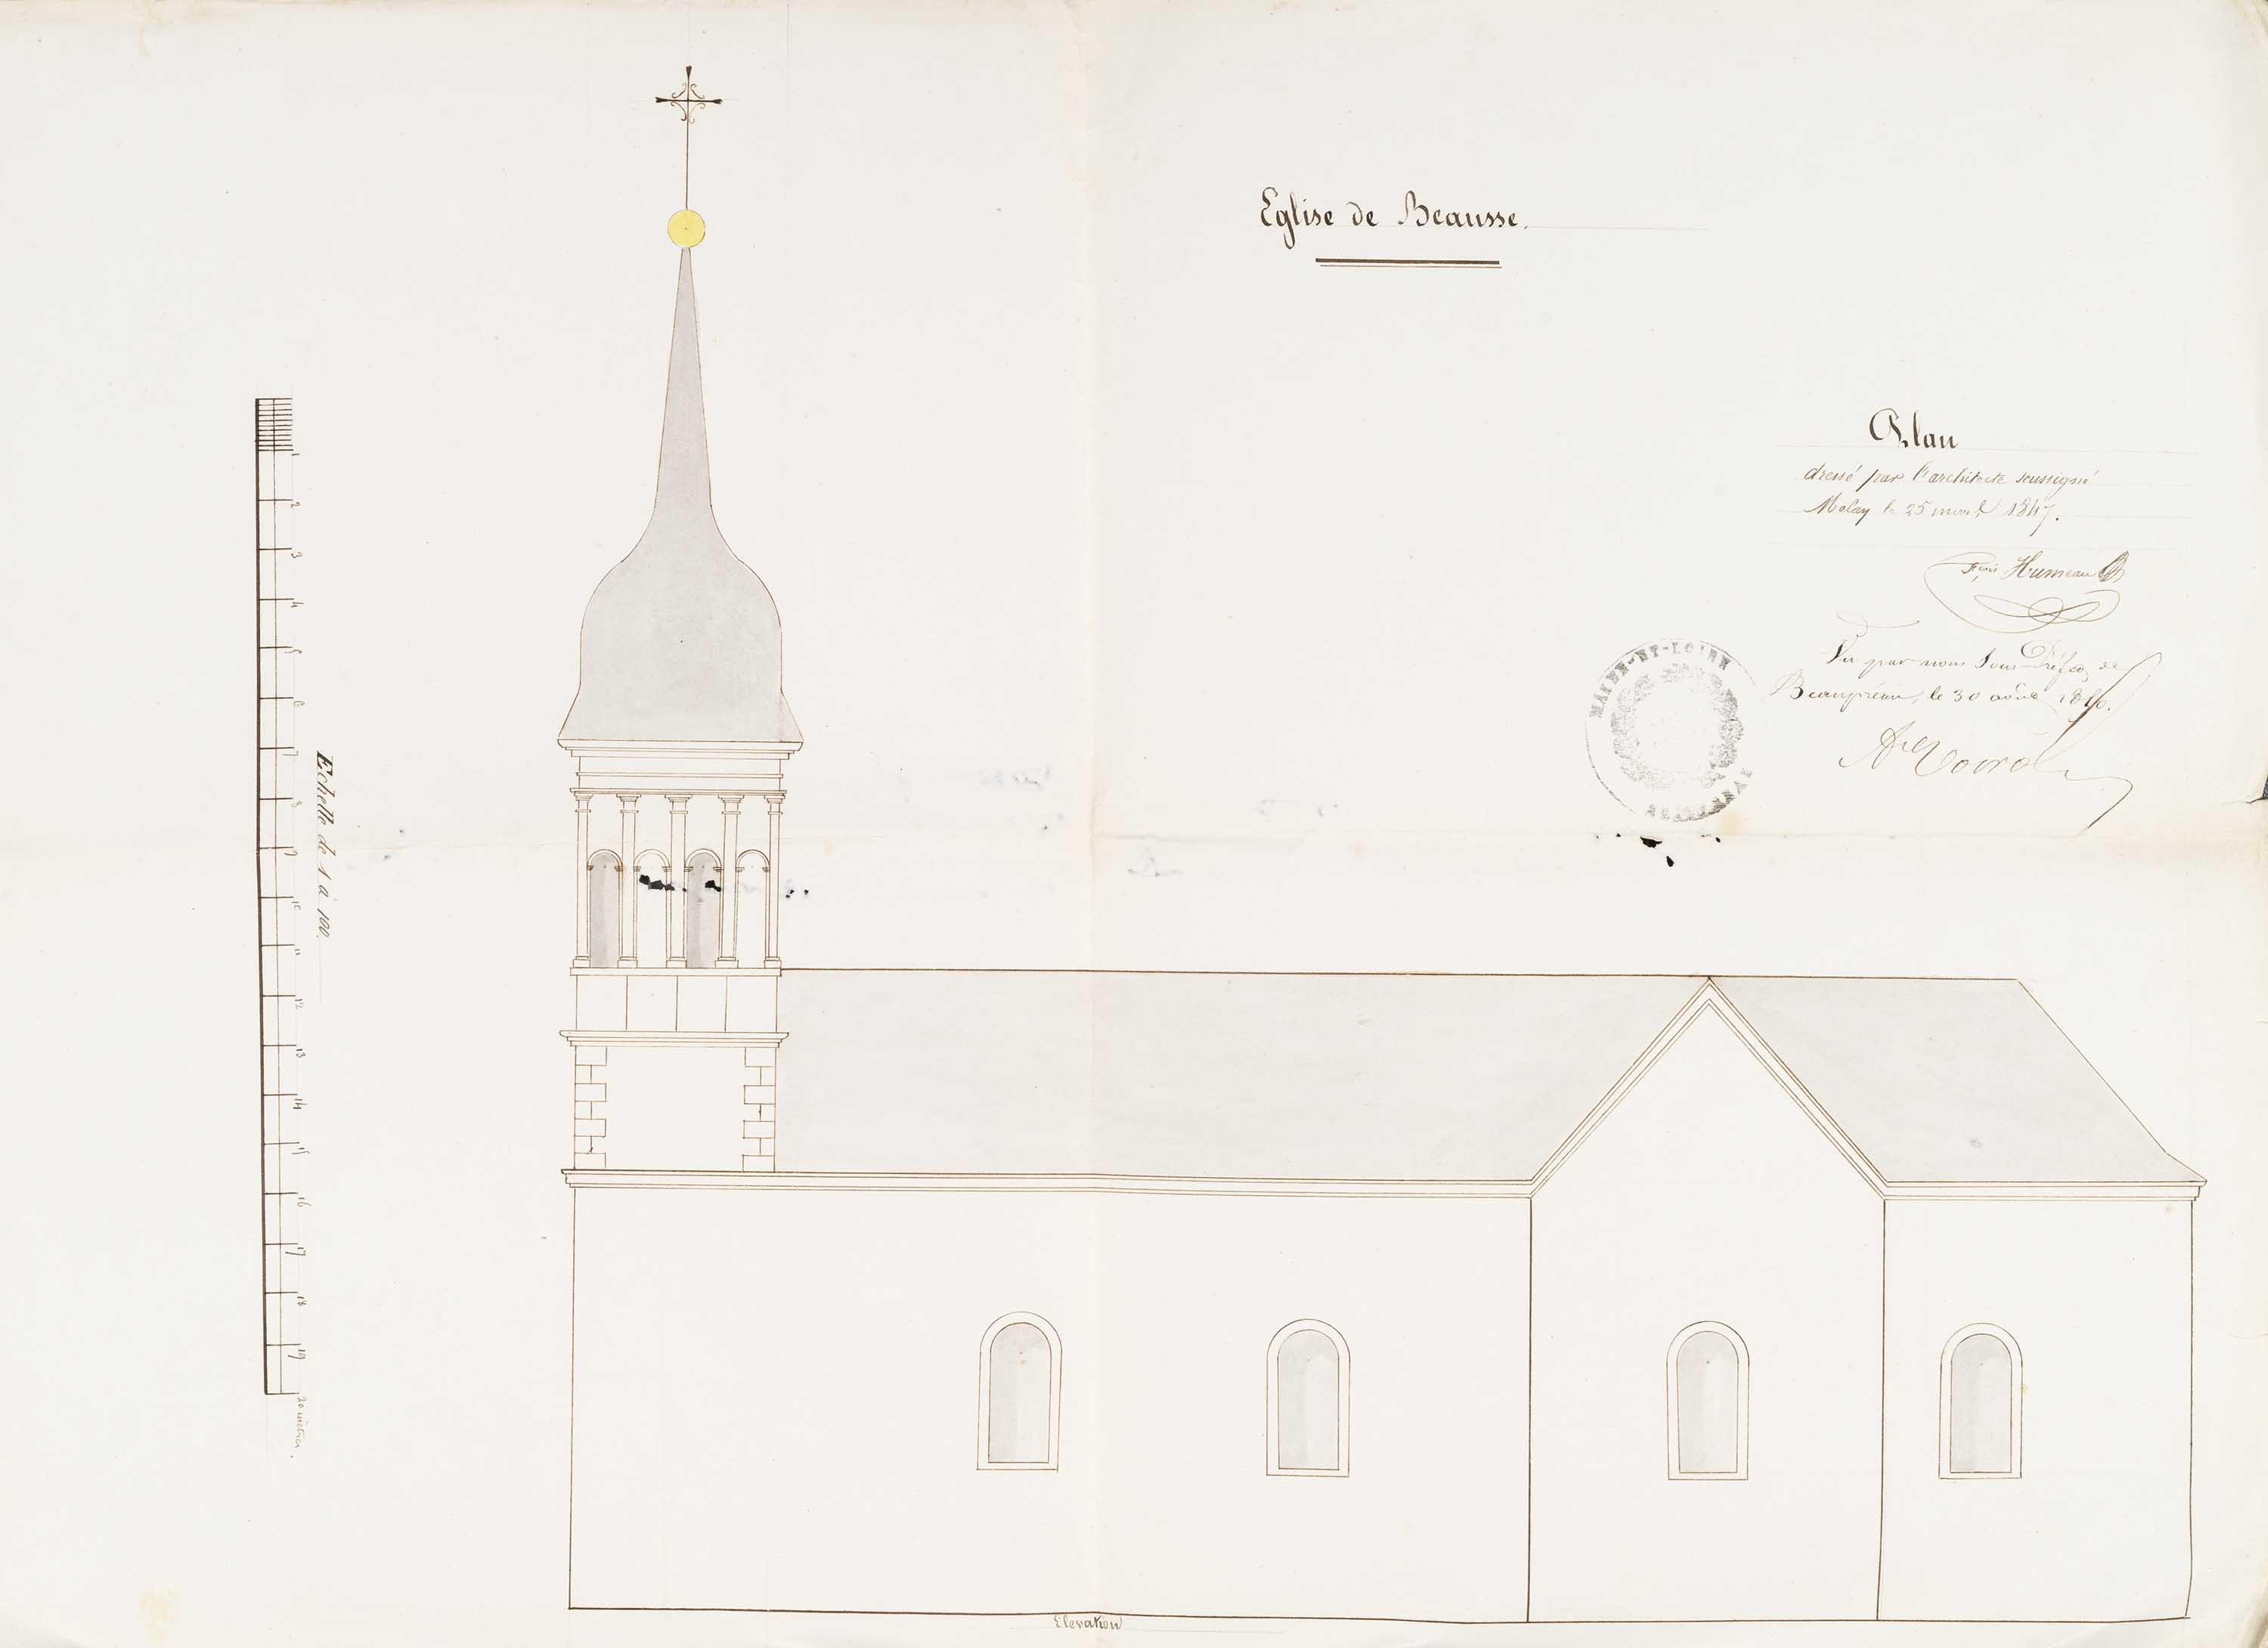 Eglise de Beausse.
Plan
dressé par l'architecte soussigné
Melay le 25 1847.
Fçois Humeau
Vu par nous Sous-Préfet de
Beaupréau, le 30 août
MAINE-ET-LOIRE
1
2
3
4
5
6
7
8
9
10
11
12
13
14
15
16
17
18
19
20 mètres.
Echelle de 1 à 100.
Elevation